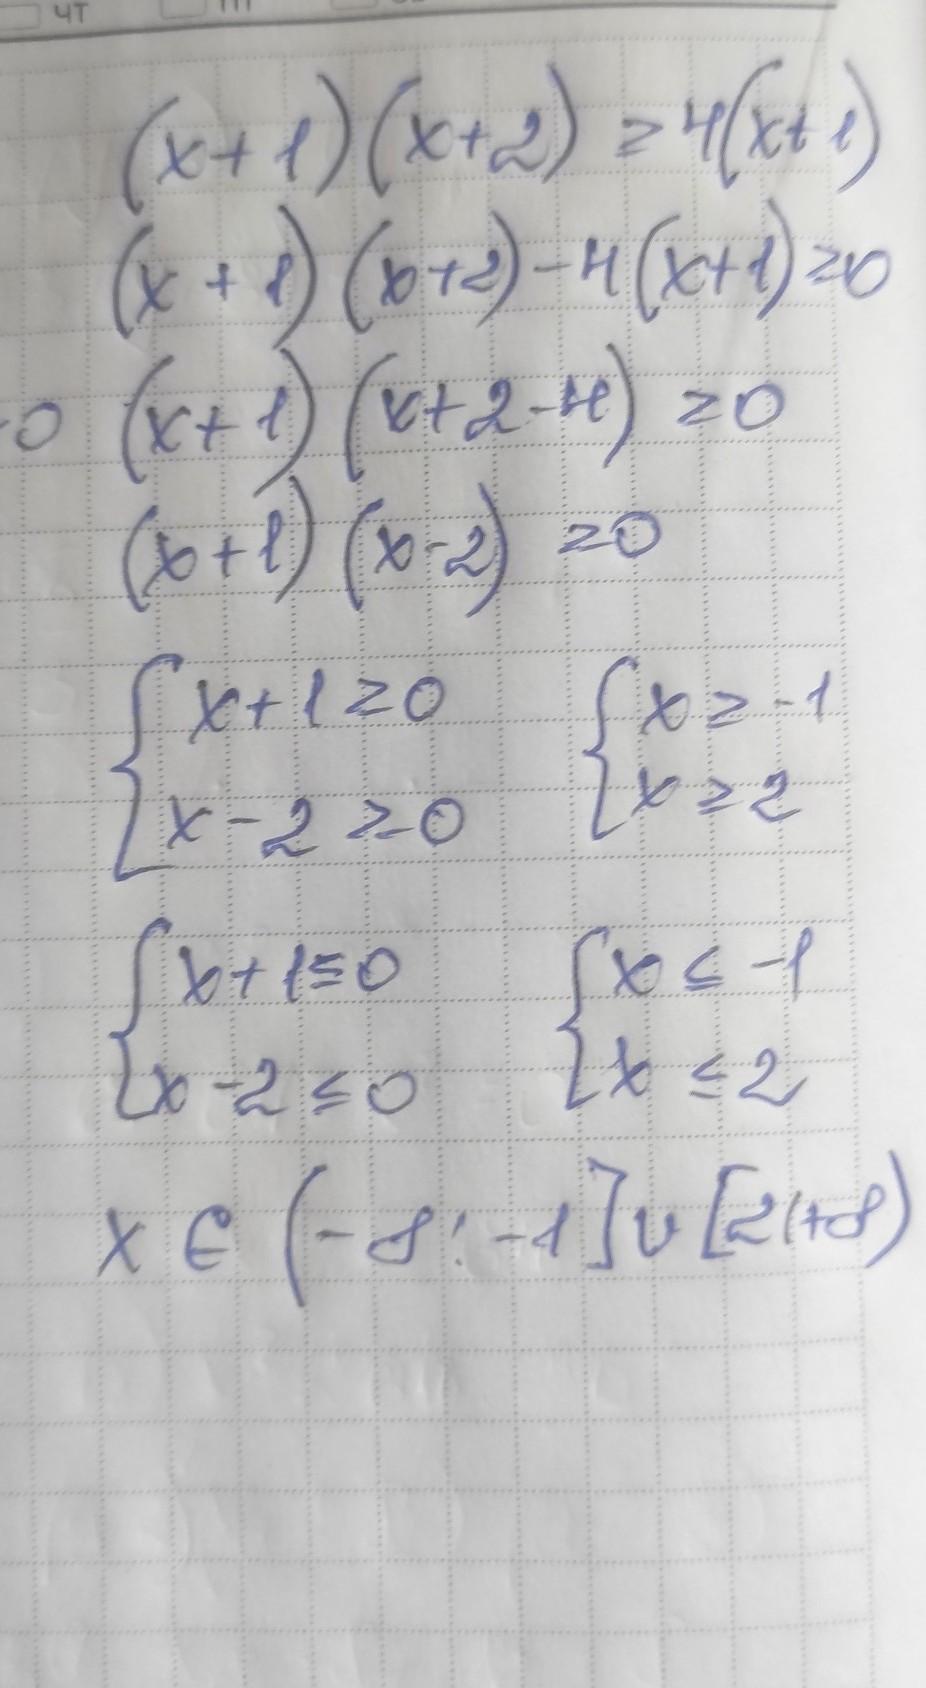 чт
(x+1)(x+2) ≥ 4(x+1)
(x+1)(x+2)-4(x+1)≥0
0 (x+1)(x+2-4) ≥0
(x+1)(x-2) ≥0
{x+1≥0 {x≥-1
x-2≥0 x≥2
{x+1≤0 {x≤-1
x-2≤0 x≤2
x∈(-∞; -1]∪[2;+∞)